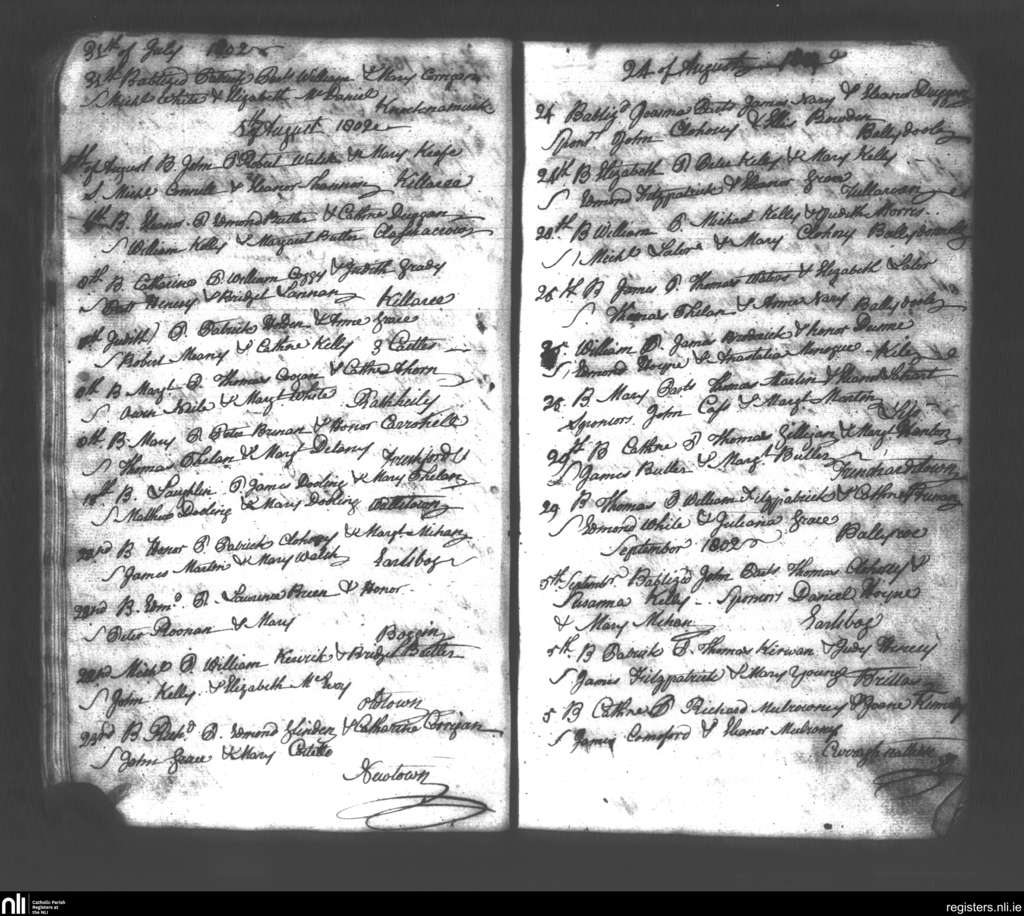 31th of July 1802
31th Baptized Patrick Parts William & Mary Corrigan
S Michl White & Elizabeth McDaniel
Knocknamuck
8th August 1802
8th of August B John P Robert Walsh & Mary Keefe
S Michl Connill & Eleanor Shannon Killaree
8th B. Eleanr. P. Edmond Butler & Cathne Duggan
S William Kelly & Margaret Butler
8th B. Catharine P. William Coggy & Judith Grady
S Henesy & Bridget Lannan Killaree
8th Judith P Patrick Dolan & Anne Grace
S Robert Meany & Cathne Kelly 3 Castles
8th B Margt. P. Thomas Cogan & Cathne Ahern
S Owen Neile & Margt White Rathbeily
8th B. Mary P. Peter Brenan & Honor
S Thomas Phelan & Margt Delany
B. Laughlin P. James Dooling & Mary Phelan
S Mathew Dooling & Mary Dooling
22rd B Honor P. Patrick Clohosy & Margt. Mihan
S James Martin & Mary Walsh Earlsbog
22rd B. Edmd. P. Laurence Brien & Honor
S Peter Roonan & Mary
Boggin
22rd Michl P. William Kenrick & Bridget Butler
S John Kelly & Elizabeth McEvoy
Oldtown
23rd B. Richd P. Edmond & Catharine Corrigan
S John Grace & Mary Costello
Newtown
24 of August 1802
24 Baptizd Joanna Parts James Nary & Eleanor Duggan
Sponrs John Clohosy & Ellis Bowden Ballydooley
24th B Elizabeth P Peter Kelly & Mary Kelly
S Edmond Fitzpatrick & Eleanor Grace Tullaroan
28th B William P. Michael Kelly & Judith Morris
S Michl Lalor & Mary Clohosy
26th B James P. Thomas & Elizabeth Lalor
S. Thomas Phelan & Anne Nary Ballydooley
William P James Brodrick & Honor Dunne
S Edmond Hoyne & Anastatia
26 B Mary Parts Thomas Martin & Eleanor
Sponsors John Cass & Margt Marton
29th B Cathne P Thomas Gilligan & Margt Stanton
S James Butler & Margt. Butler
29 B Thomas P William Fitzpatrick & Cathne
S Edmond White & Juliana Grace Ballyroe
September 1802
5th Septembr Baptized John Parts Thomas Clohosy &
Susanna Kelly Sponsors Daniel Hoyne
& Mary Mihan Earlsbog
5th B Patrick P Thomas Kerwan & Judy Henesy
S James Fitzpatrick & Mary Young Brittas
5 B Cathne P Richard Mulrowney & Joane Kennedy
S James Comoford & Eleanor Mulrony
nli
Catholic Parish
Registers at
the NLI
registers.nli.ie